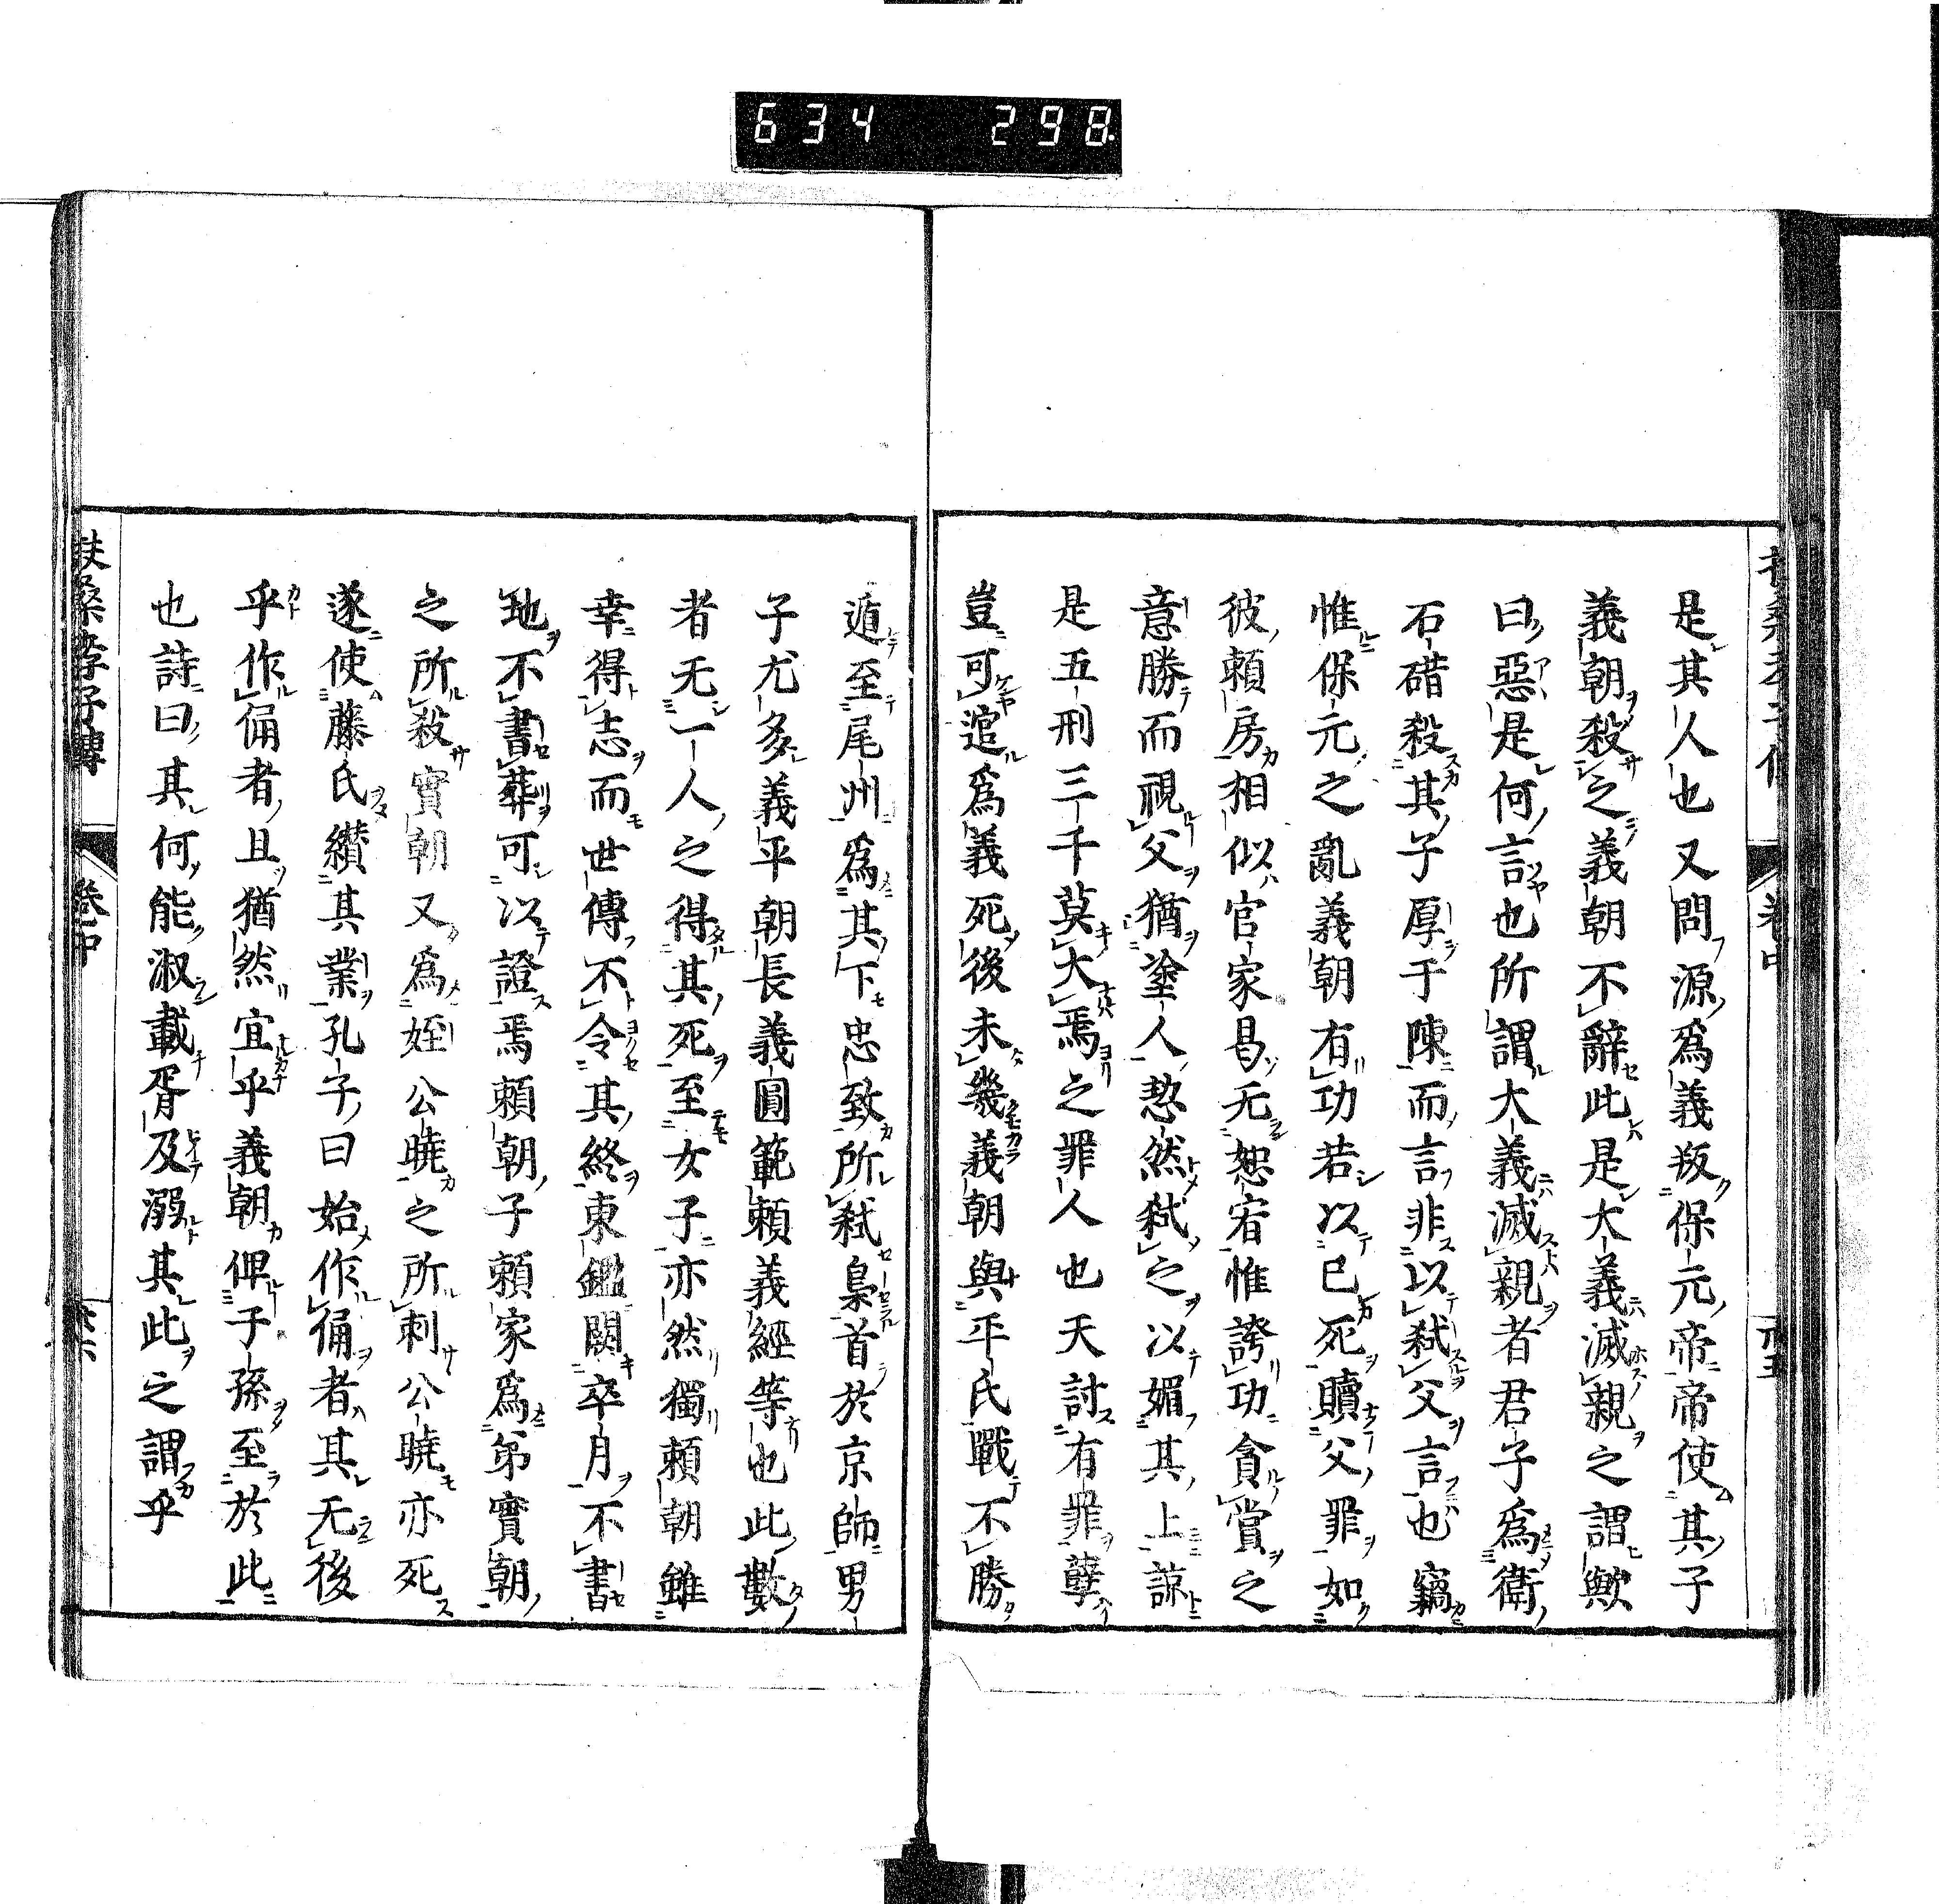 634 298
是其人也又問源爲義叛保元帝帝使其子
義朝殺之義朝不辭此是大義滅親之謂歟
曰惡是何言也所謂大義滅親者君子爲衛
石碏殺其子厚于陳而言非以弑父言也竊
惟保元之亂義朝有功若以已死贖父罪如
彼賴房相似官家曷无恕宥惟誇功貪賞之
意勝而視父猶塗人愸然弑之以媚其上諒
是五刑三千莫大焉之罪人也天討有罪孽
豈可逭爲義死後未幾義朝與平氏戰不勝
遁至尾州爲其下忠致所弑梟首於京師男
子尤多義平朝長義圓範賴義經等也此數
者无一人之得其死至女子亦然獨賴朝雖
幸得志而世傳不令其終東鑑闕卒月不書
地不書葬可以證焉賴朝子賴家爲弟實朝
之所殺實朝又爲姪公曉之所刺公曉亦死
遂使藤氏纘其業孔子曰始作俑者其无後
乎作俑者且猶然宜乎義朝俾子孫至於此
也詩曰其何能淑載胥及溺其此之謂乎
扶桑孝子傳 卷中